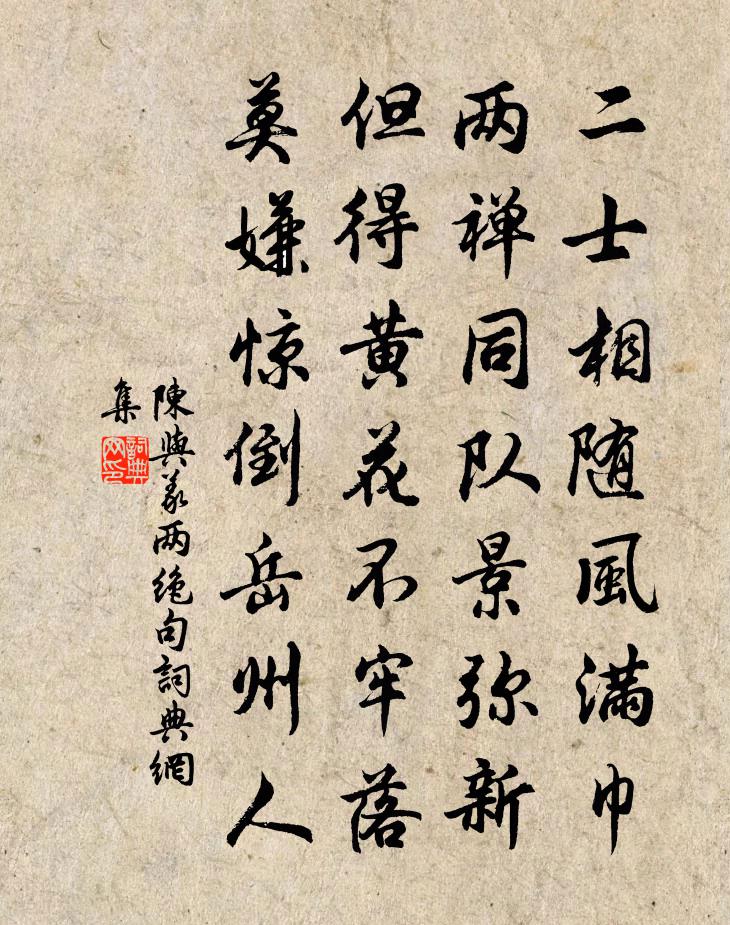 二士相随風滿巾
两禅同队景弥新
但得黄花不牢落
莫嫌惊倒岳州人
陳與義两绝句詞典網
集
詞典
网印